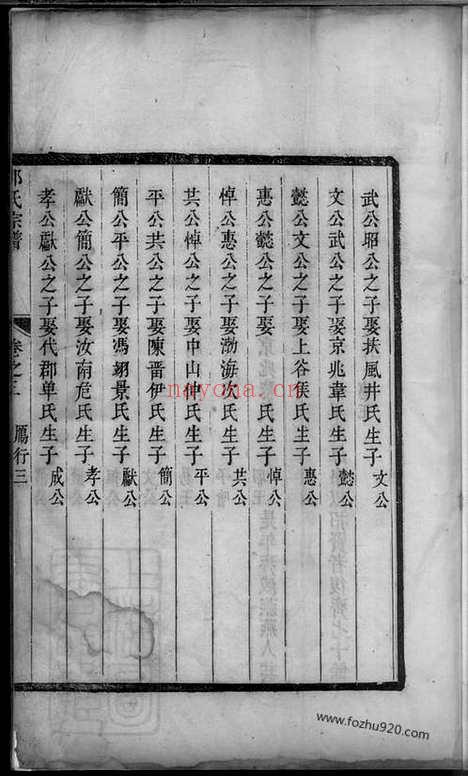 武公昭公之子娶扶風井氏生子文公
文公武公之子娶京兆韋氏生子懿公
懿公文公之子娶上谷張氏生子惠公
惠公懿公之子娶京兆 氏生子悼公
悼公惠公之子娶渤海次氏生子共公
共公悼公之子娶中山仲氏生子平公
平公共公之子娶陳晋伊氏生子簡公
簡公平公之子娶馮翊景氏生子獻公
獻公簡公之子娶汝南危氏生子孝公
孝公獻公之子娶代郡单氏生子成公
氏宗譜 卷之三 鴈行三
nayona.cn
www.fozhu920.com